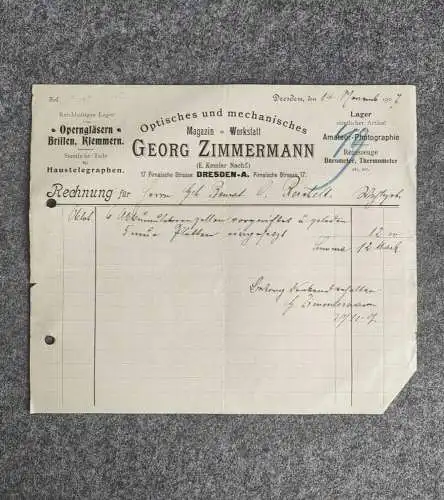 Fol.
Dresden, den 14 1907
Reichhaltiges Lager
von
Operngläsern
Brillen, Klemmern.
Sämtliche Teile
zu
Haustelegraphen.
Optisches und mechanisches
Magazin u. Werkstatt
GEORG ZIMMERMANN
(E. Kessler Nachf.)
17 Pirnaische Strasse DRESDEN-A. Pirnaische Strasse 17.
Lager
sämtlicher Artikel
Amateur-Photographie
Reisszeuge
Barometer, Thermometer
etc. etc.
Rechnung für Herrn
6 Akkumulatorenzellen vorgerichtet u. geladen
5 neue Platten eingesetzt 12 m
Summa 12 Mark
Betrag dankend erhalten
G. Zimmermann